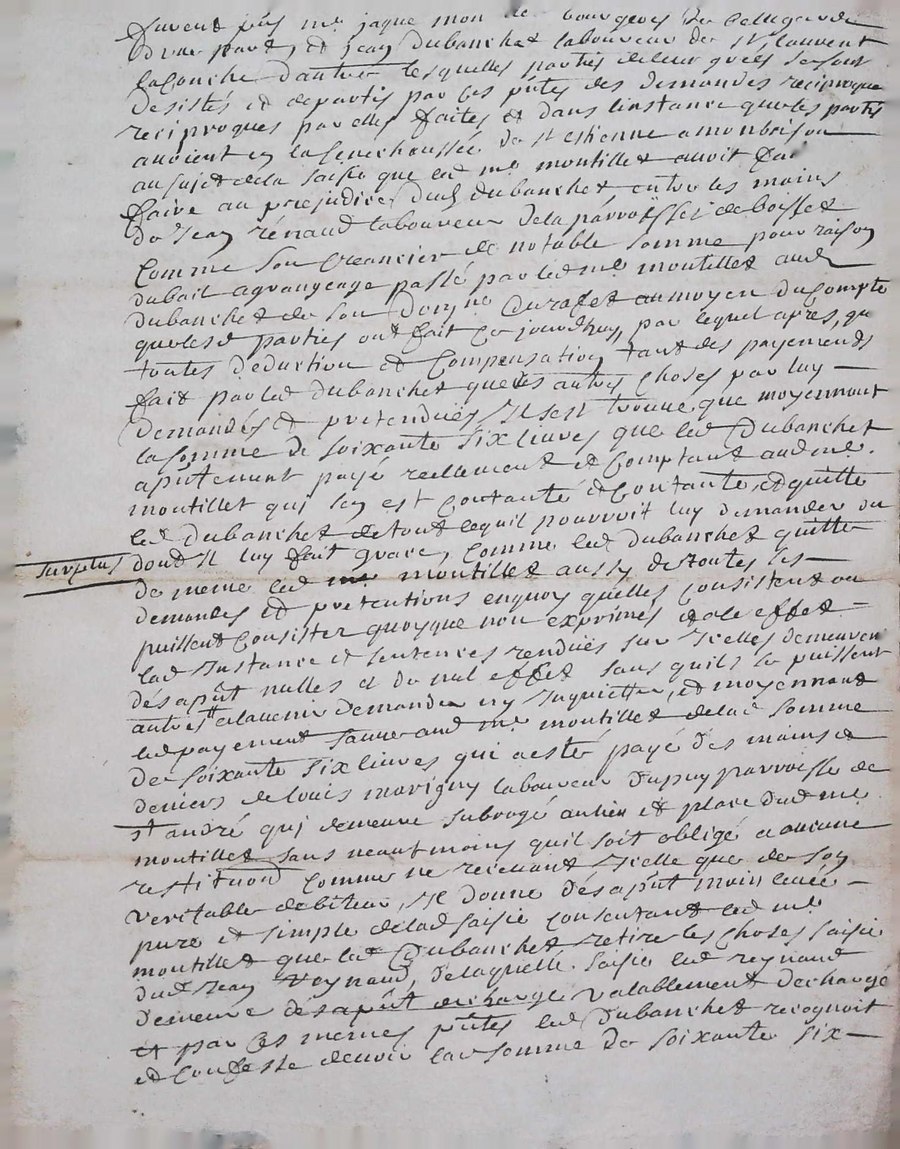 furent pñs me jaque mon de bourgeois de
d'une part, et Jean dubanchet laboureur de st laurent
laconche d'autre lesquelles parties de leur gré se sont
desistés et departis par ces pñtes des demandes reciproque
reciproques par elles faites et dans l'instance que les parties
avoient en la senechaussée de st estienne a monbrison
au sujet de la saisie que led me montillet avoit fait
faire au prejudice dud dubanchet entre les mains
de Jean rénaud laboureur de la parroisse de boisset
comme son creancier de notable somme pour raison
du bail a grangeage passé par led me montillet aud
dubanchet de son domne au moyen du compte
que lesd parties ont fait ce jourdhuy, par lequel apres, que
toutes deduction et compensation tant des payements
fait par led dubanchet que des autres choses par luy
demandés et pretendues Il s'est trouvé que moyennant
la somme de soixante six livres que led dubanchet
apñtement payé reellement et comptant aud me
montillet qui s'en est contanté et contante, et quitte
led dubanchet de tout ce quil pourroit luy demander ou
surplus dont Il luy fait grace, comme led dubanchet quitte
de meme led me montillet aussy de toutes les
demandes et pretentions enquoy quelles consistent ou
puissent consister quoyque non exprimés et ole effet
lad Instance et sentences rendues sur Icelles demeurent
dés apñt nulles et de nul effet sans quils se puissent
autres a lavenir demander ny Inquietter, et moyennant
led payement aud me montillet de lad somme
de soixante six livres qui a esté payé des mains et
deniers de louis marigny laboureur dupuy parroisse de
st andré qui demeure subrogé au lieu et place dud me
montillet sans neantmoins quil soit obligé a aucune
restituon comme ne recevant Icelle que de son
veritable debiteur, Il donne dés apñt main levée
pure et simple de lad saisie consentant led me
montillet que led dubanchet retire les choses saisie
dud Jean reynaud, de laquelle saisie led reynaud
demeure dés apñt dechargé valablement dechargé
et par ces memes pñtes led dubanchet recognoit
et confesse devoir la somme de soixante six